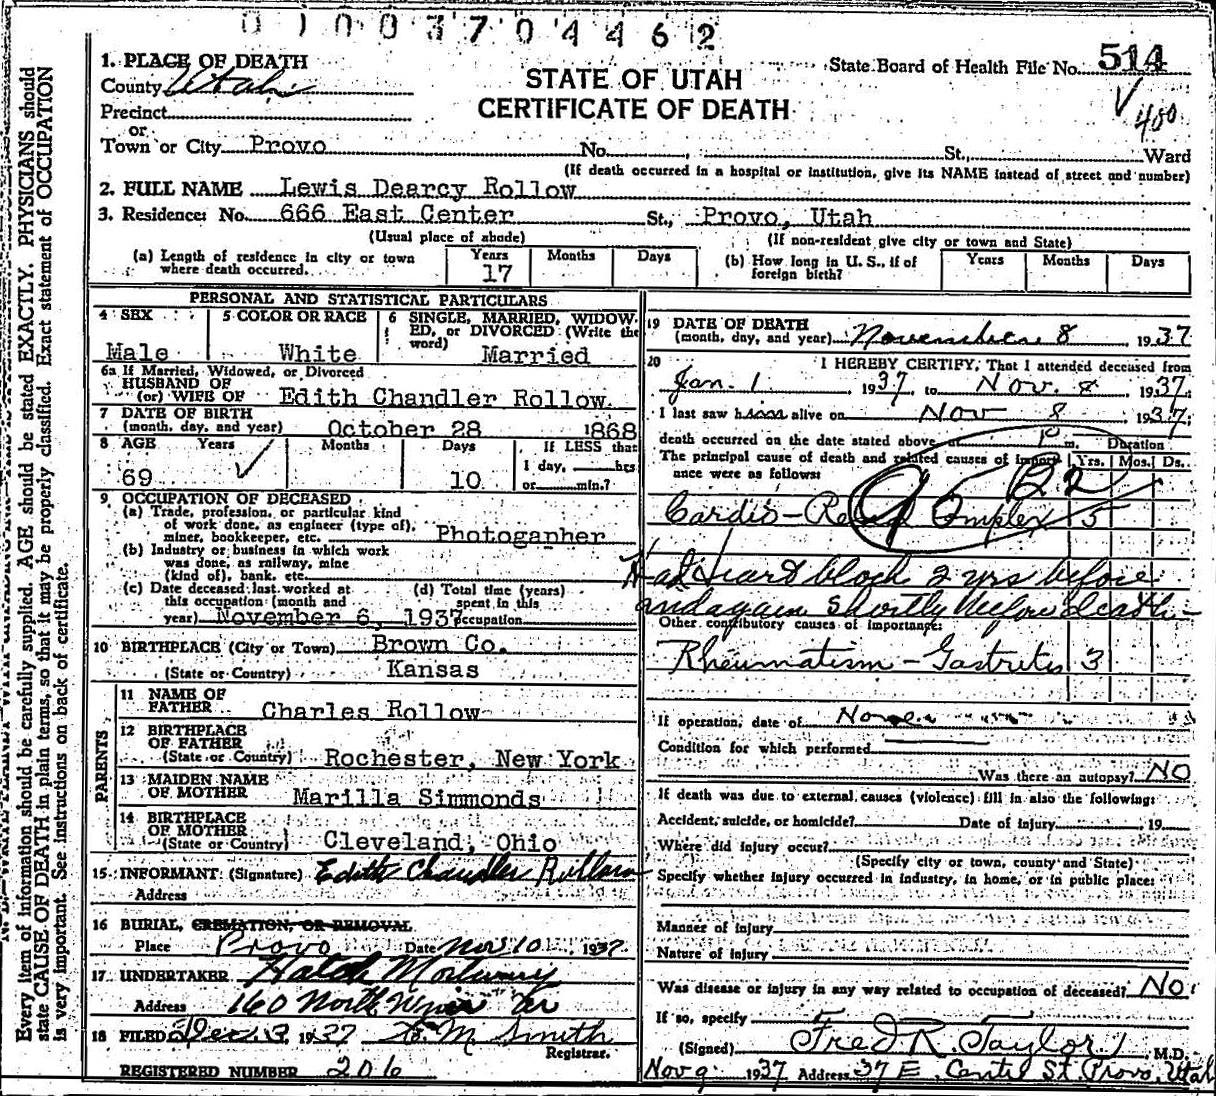 0100370446 2
1. PLACE OF DEATH
County Utah
Precinct
or
Town or City Provo No. St., Ward
STATE OF UTAH
CERTIFICATE OF DEATH
State Board of Health File No. 514
400
(If death occurred in a hospital or institution, give its NAME instead of street and number)
2. FULL NAME Lewis Dearcy Rollow
3. Residence: No. 666 East Center St., Provo, Utah
(Usual place of abode) (If non-resident give city or town and State)
(a) Length of residence in city or town where death occurred. Years 17 Months Days
(b) How long in U. S., if of foreign birth? Years Months Days
PERSONAL AND STATISTICAL PARTICULARS
4 SEX Male
5 COLOR OR RACE White
6 SINGLE, MARRIED, WIDOWED, or DIVORCED (Write the word) Married
6a If Married, Widowed, or Divorced
HUSBAND OF
(or) WIFE OF Edith Chandler Rollow
7 DATE OF BIRTH
(month, day, and year) October 28 1868
8 AGE Years Months Days If LESS than
69 10 1 day, hrs
or min.?
9 OCCUPATION OF DECEASED
(a) Trade, profession, or particular kind
of work done, as engineer (type of),
miner, bookkeeper, etc. Photogapher
(b) Industry or business in which work
was done, as railway, mine
(kind of), bank, etc.
(c) Date deceased last worked at
this occupation (month and
year) November 6, 1937
(d) Total time (years)
spent in this
occupation
10 BIRTHPLACE (City or Town) Brown Co.
(State or Country) Kansas
PARENTS
11 NAME OF
FATHER Charles Rollow
12 BIRTHPLACE
OF FATHER
(State or Country) Rochester, New York
13 MAIDEN NAME
OF MOTHER Marilla Simmonds
14 BIRTHPLACE
OF MOTHER
(State or Country) Cleveland, Ohio
15 INFORMANT: (Signature) Edith Chandler Rollow
Address
16 BURIAL, CREMATION, OR REMOVAL
Place Provo Date Nov 10 1937
17 UNDERTAKER Hatch Mortuary
Address 160 North
18 FILED Dec. 3 1937 Smith
Registrar.
REGISTERED NUMBER 206
19 DATE OF DEATH
(month, day, and year) November 8, 1937
20 I HEREBY CERTIFY, That I attended deceased from
Jan. 1 1937 to Nov. 8 1937
I last saw him alive on Nov 8 1937;
death occurred on the date stated above at P m. Duration
The principal cause of death and related causes of importance were as follows: Yrs. Mos. Ds.
95 B2
Cardio-Renal Complex 5
Had Heart block 2 yrs before
and again shortly before death-
Other contributory causes of importance:
Rheumatism - Gastritis 3
If operation, date of None
Condition for which performed
Was there an autopsy? NO
If death was due to external causes (violence) fill in also the following:
Accident, suicide, or homicide? Date of injury , 19
Where did injury occur?
(Specify city or town, county and State)
Specify whether injury occurred in industry, in home, or in public place:
Manner of injury
Nature of injury
Was disease or injury in any way related to occupation of deceased? NO
If so, specify
(Signed) Fred R. Taylor, M.D.
Nov 9 1937 Address 37 E. Center St. Provo, Utah
Every item of information should be carefully supplied. AGE should be stated EXACTLY. PHYSICIANS should
state CAUSE OF DEATH in plain terms, so that it may be properly classified. Exact statement of OCCUPATION
is very important. See instructions on back of certificate.